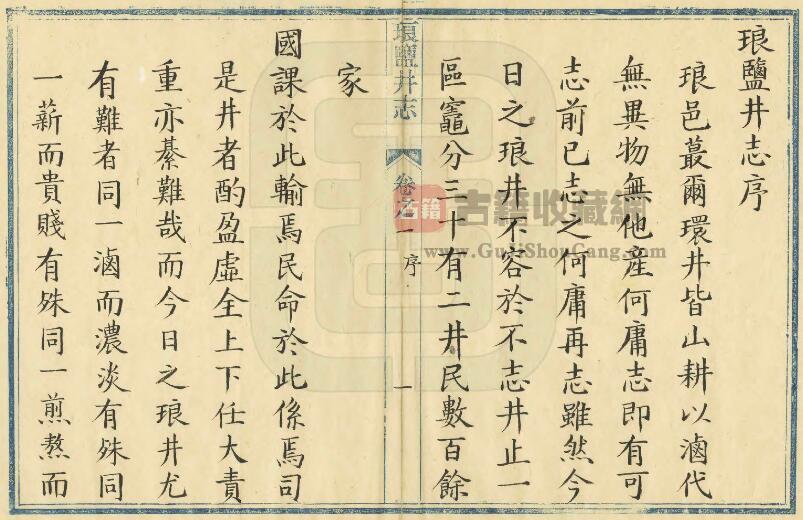 琅鹽井志序
琅邑蕞爾環井皆山耕以滷代
無異物無他産何庸志即有可
志前已志之何庸再志雖然今
日之琅井不容於不志井止一
區竈分三十有二井民數百餘
琅鹽井志
卷之一
序
一
家
國課於此輸焉民命於此係焉司
是井者酌盈虛全上下任大責
重亦綦難哉而今日之琅井尤
有難者同一滷而濃淡有殊同
一薪而貴賤有殊同一煎熬而
古籍
古籍收藏網
www.GuJiShouCang.com